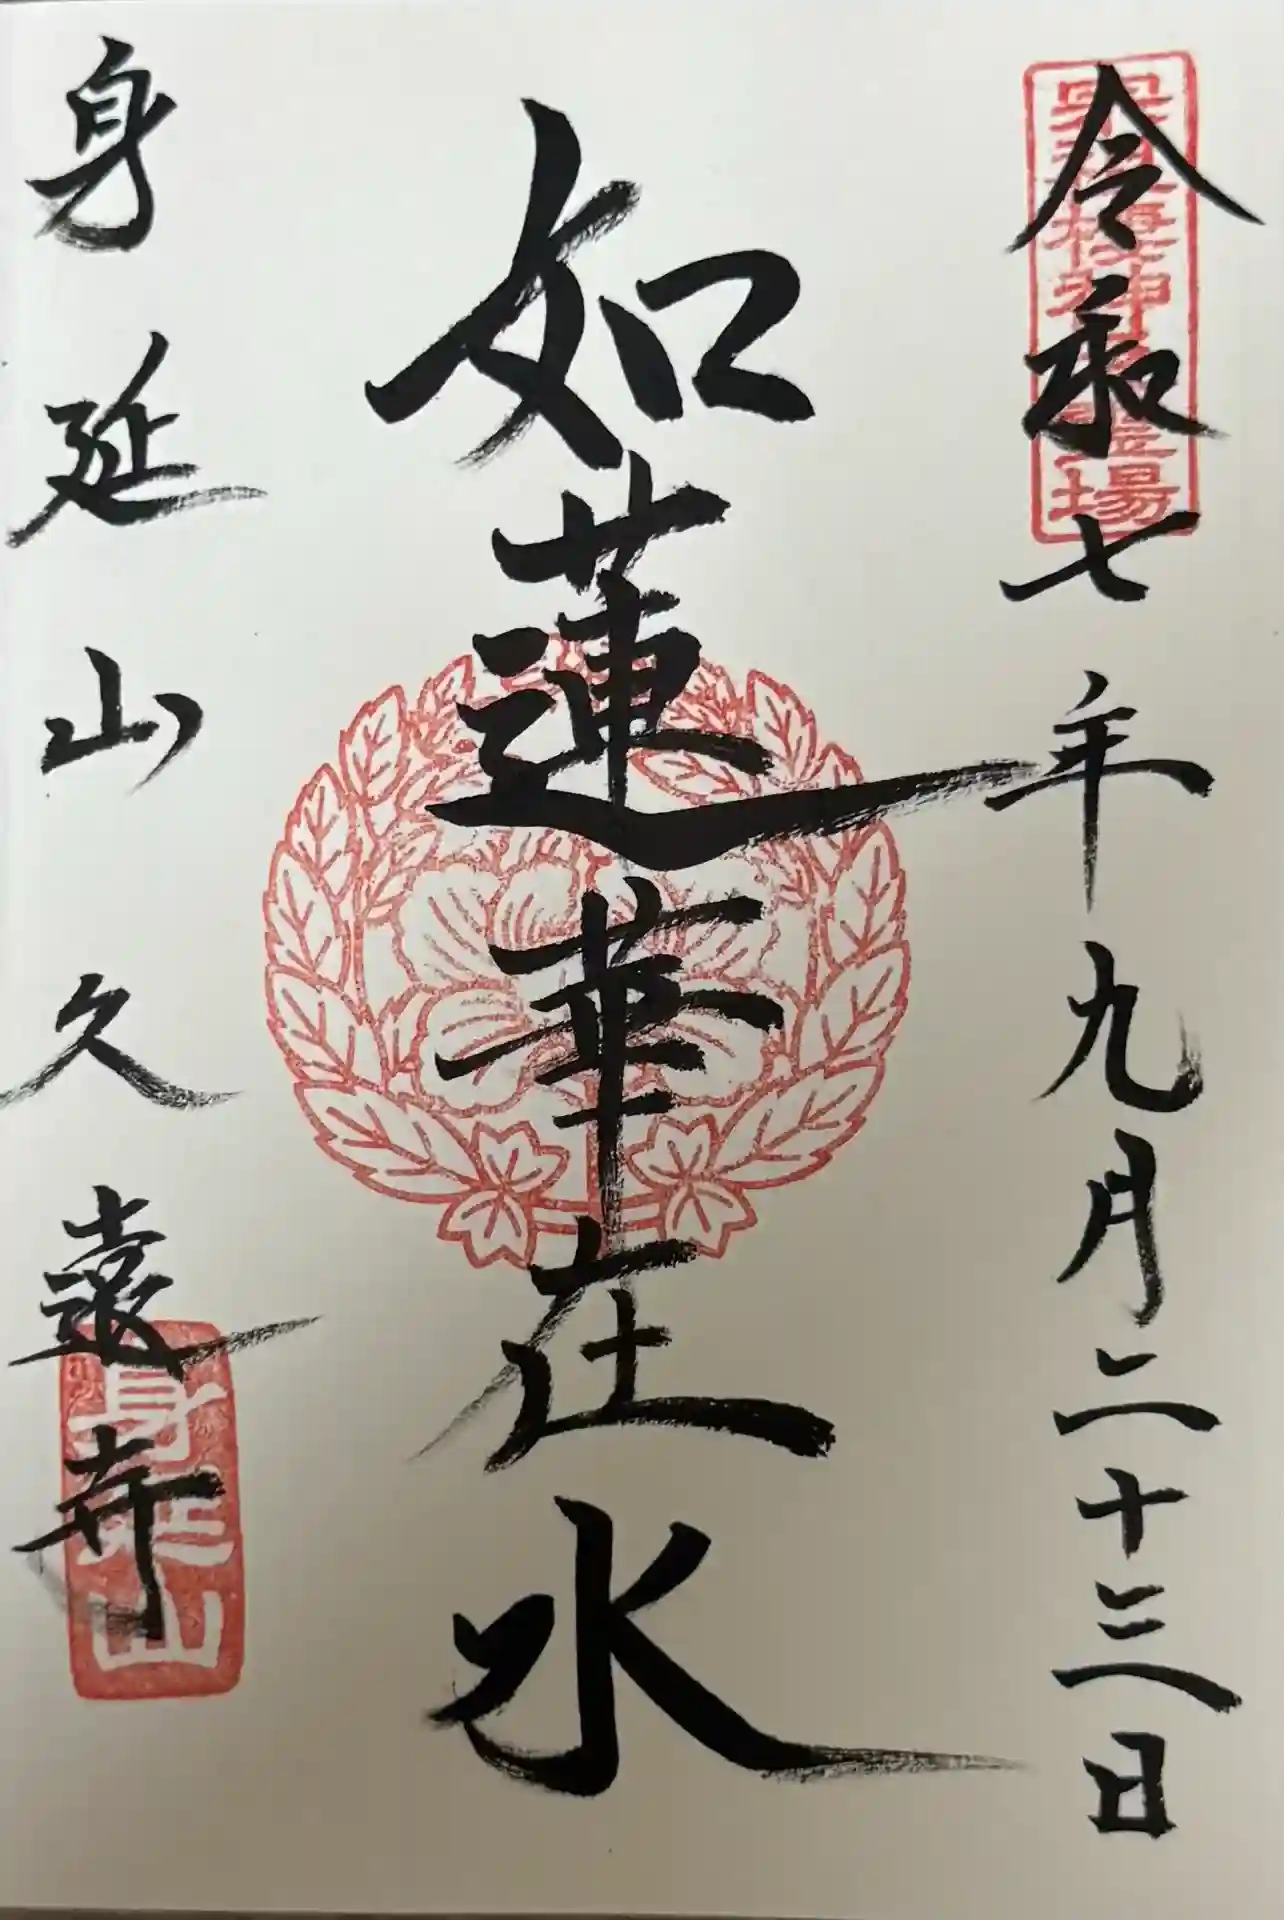 令和七年九月二十三日
宗祖棲神 霊場
如蓮華在水
身延山久遠寺
身延山